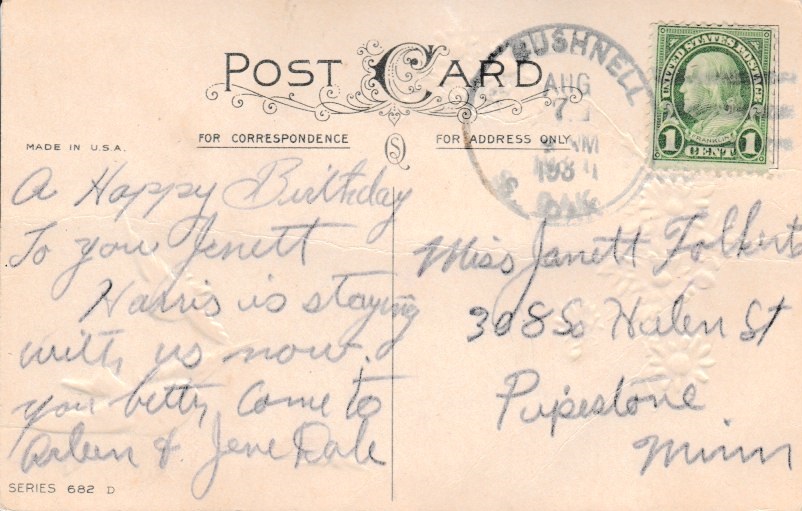 POST CARD
FOR CORRESPONDENCE
FOR ADDRESS ONLY
MADE IN U.S.A.
BUSHNELL
AUG
7
M
193
S. DAK.
UNITED STATES POSTAGE
FRANKLIN
1 CENT 1
A Happy Birthday
To you Jenett
Harris is staying
with us now.
you betty come to
Arleen & Jene Dale
SERIES 682 D
Miss Janett Folkert
308 So Hialen St
Pipestone
Minn